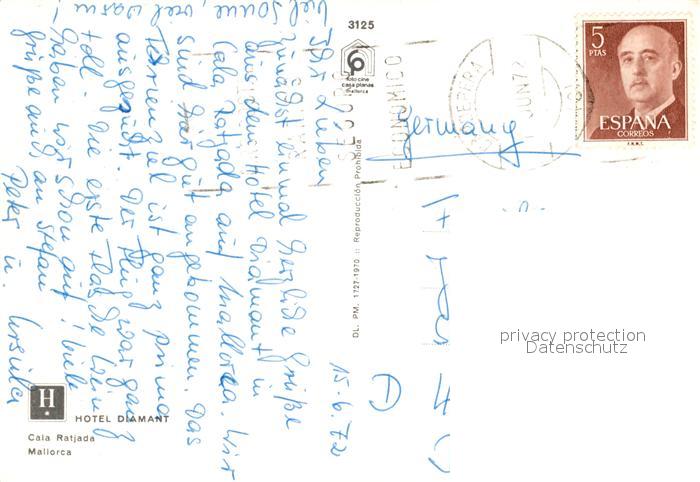 3125
foto cine
casa planas
mallorca
DL. PM. 1727-1970 :: Reproducción Prohibida
HOTEL DIAMANT
Cala Ratjada
Mallorca
H
5
PTAS
ESPAÑA
CORREOS
F.N.M.T.
JUN 72
ECONOMICO
Germany
privacy protection
Datenschutz
15.6.72
Ihr Lieben
zunächst einmal herzliche Grüße
aus dem Hotel Diamant in
Cala Ratjada auf Mallorca. Wir
sind hier gut angekommen. Das
Ferienziel ist ganz prima
ausgesucht. Der Flug war ganz
toll. Die erste Flasche Wein
haben wir schon auf! Viele
Grüße auch an Stefan
Peter u. Ursula
Viel Sonne, viel warm!